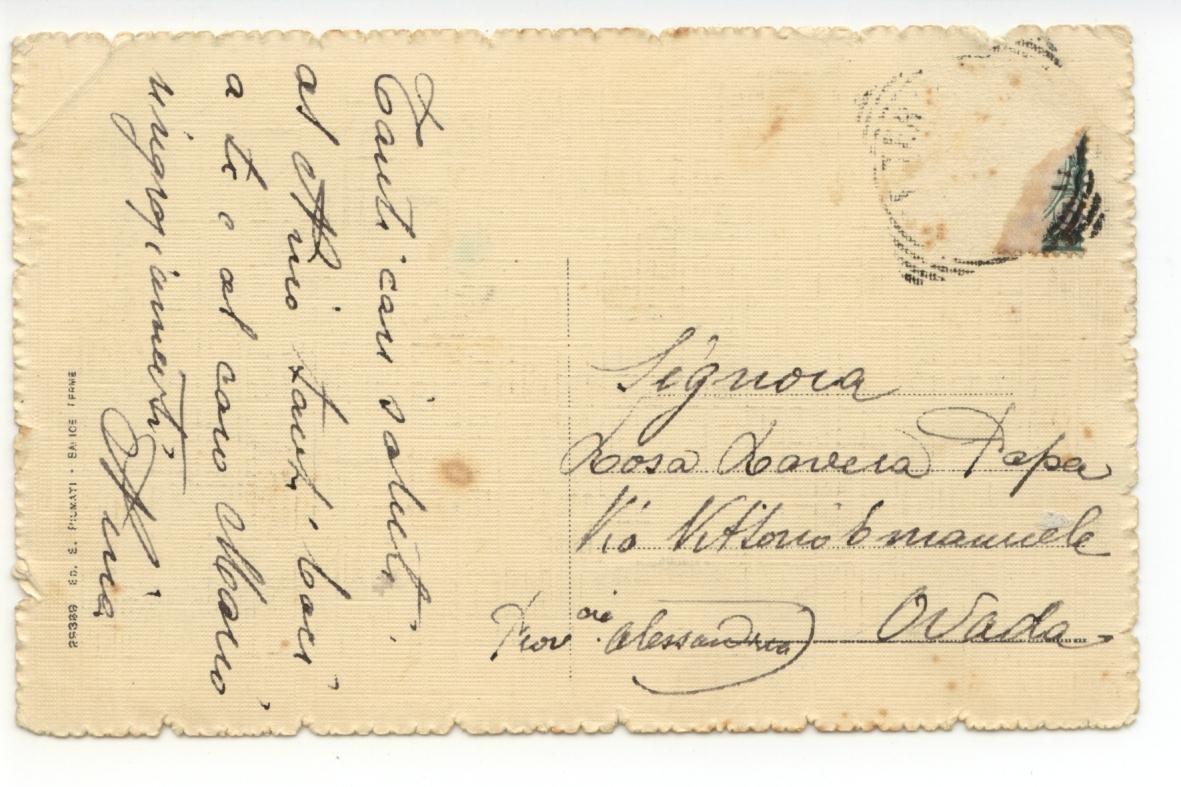 Tanti cari saluti,
al Nino tanti baci
a te e al caro Mario
ringraziamenti
29389 ED. E. PIUMATI - SALICE TERME
Signora
Rosa Ravera Papa
Via Vittorio Emanuele
Ovada
Prov cia Alessandria